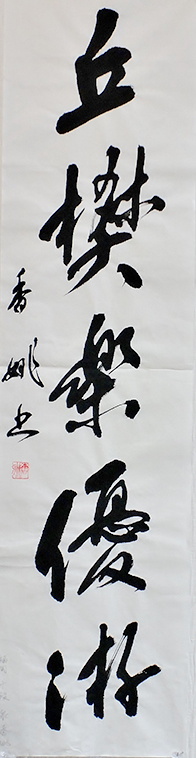 丘樊樂優游
香姚书